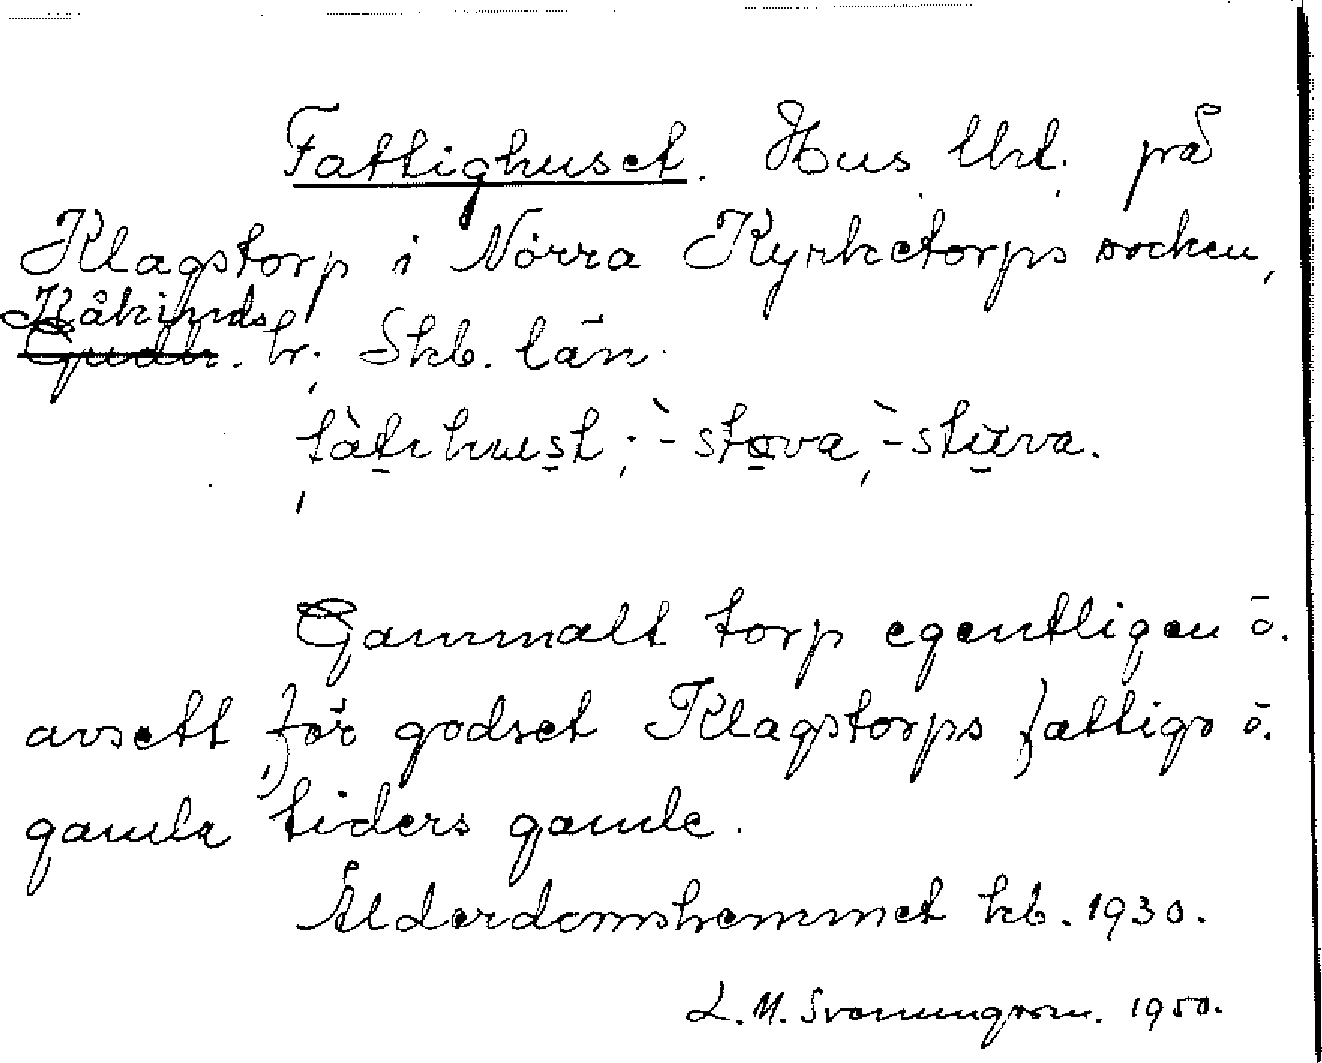 Fattighuset. Hus lht. på
Klagstorp i Norra Kyrketorps socken,
Kåkinds
Gudh. hr. Skb. län.
fàtihust; `-stova, `-stuva.
Gammalt torp egentligen ö.
avsett för godset Klagstorps fattiga ö.
gamla tiders gamle.
Ålderdomshemmet kb. 1930.
L. M. Svenungsson. 1950.